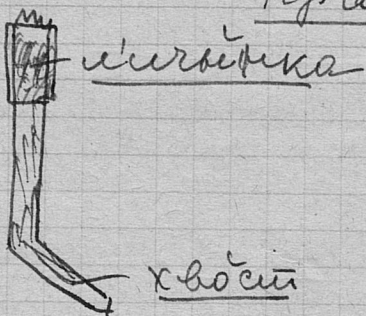 личы́нка
хво́ст